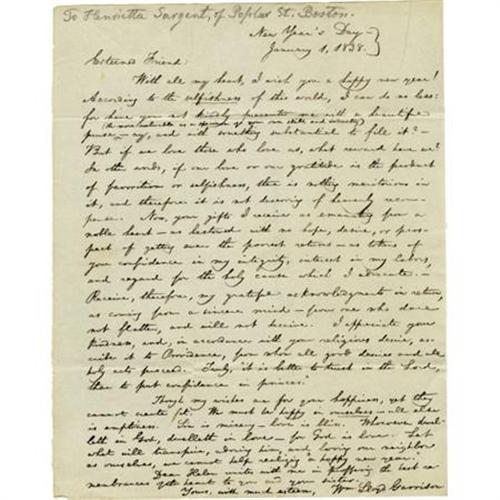 To Henrietta Sargent, of Poplar St. Boston.
New Year's Day—
January 1, 1838.
Esteemed Friend:
With all my heart, I wish you a happy new year!
According to the selfishness of this world, I can do no less:
for have you not kindly presented me with a beautiful
(the more valuable as a specimen of your own skill and industry)
purse,—ay, and with something substantial to fill it?—
But if we love those who love us, what reward have we?
In other words, if our love or our gratitude is the product
of favoritism or selfishness, there is nothing meritorious in
it, and therefore it is not deserving of heavenly recom-
pense. Now, your gifts I receive as emanating from a
noble heart—as bestowed with no hope, desire, or pros-
pect of getting even the poorest returns—as tokens of
your confidence in my integrity, interest in my labors,
and regard for the holy cause which I advocate.—
Receive, therefore, my grateful acknowledgments in return,
as coming from a sincere mind—from one who dare
not flatter, and will not deceive. I appreciate your
kindness, and, in accordance with your religious desire, as-
cribe it to Providence, from whom all good desires and all
holy acts proceed. Truly, it is better to trust in the Lord,
than to put confidence in princes."
Though my wishes are for your happiness, yet they
cannot create it. We must be happy in ourselves—all else
is emptiness. Sin is misery—love is bliss. Whosoever dwel-
leth in God, dwelleth in love—for God is love. Let
what will transpire, loving him, and loving our neighbor
as ourselves, we cannot but realize a happy new year!
Dear Helen unites with me in proffering the best re-
membrances of the heart to you and your sister.
Yours, with much esteem,
Wm. Lloyd Garrison